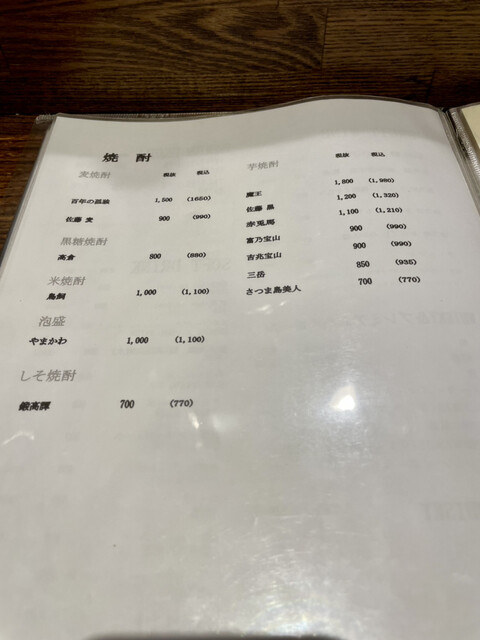 焼 酎
麦焼酎 税抜 税込
百年の孤独 1,500 (1650)
佐藤 麦 900 (990)
黒糖焼酎
高倉 800 (880)
米焼酎
鳥飼 1,000 (1,100)
泡盛
やまかわ 1,000 (1,100)
しそ焼酎
鍛高譚 700 (770)
芋焼酎 税抜 税込
魔王 1,800 (1,980)
佐藤 黒 1,200 (1,320)
赤兎馬 1,100 (1,210)
富乃宝山 900 (990)
吉兆宝山 900 (990)
三岳 850 (935)
さつま島美人 700 (770)